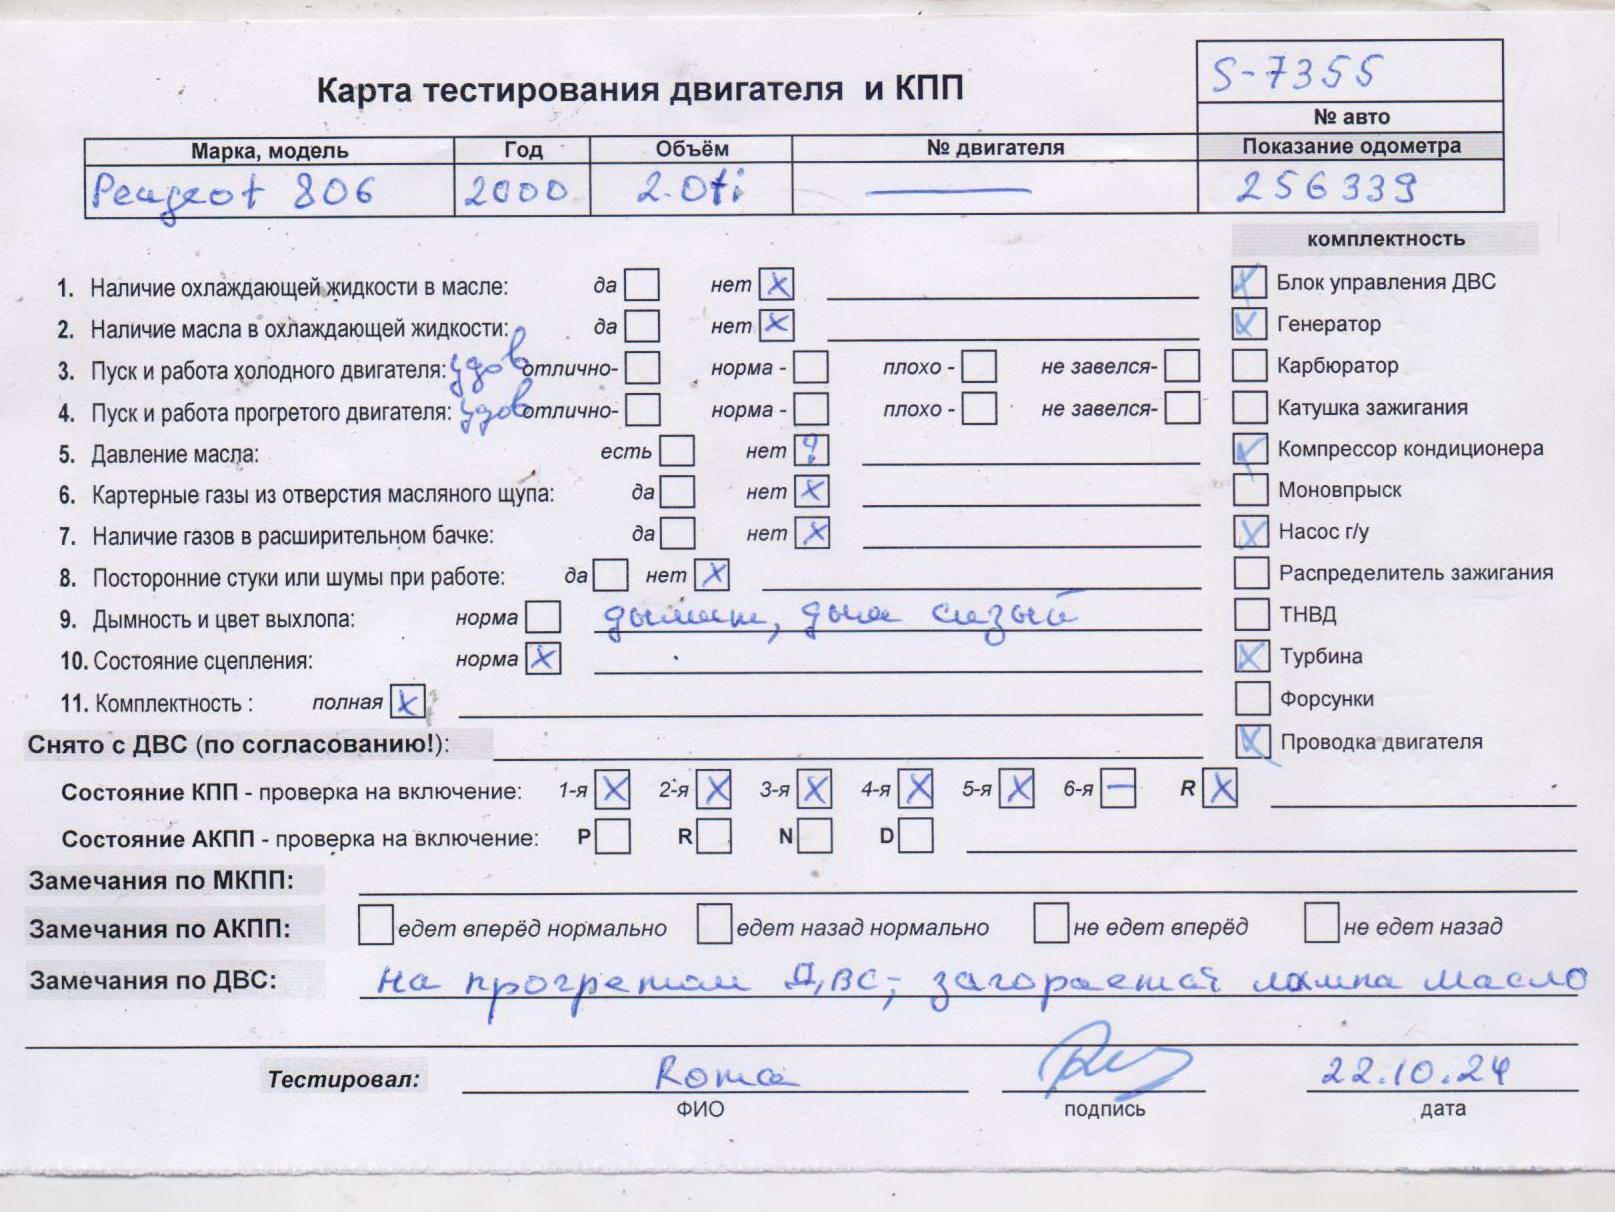 S-7355
Карта тестирования двигателя и КПП
№ авто
Марка, модель Год Объём № двигателя Показание одометра
Peugeot 806 2000 2.0ti — 256339
комплектность
1. Наличие охлаждающей жидкости в масле: да нет X Блок управления ДВС
2. Наличие масла в охлаждающей жидкости: да нет X Генератор
3. Пуск и работа холодного двигателя: удов отлично- норма - плохо - не завелся- Карбюратор
4. Пуск и работа прогретого двигателя: удов отлично- норма - плохо - не завелся- Катушка зажигания
5. Давление масла: есть нет ? Компрессор кондиционера
6. Картерные газы из отверстия масляного щупа: да нет X Моновпрыск
7. Наличие газов в расширительном бачке: да нет X Насос г/у
8. Посторонние стуки или шумы при работе: да нет X Распределитель зажигания
9. Дымность и цвет выхлопа: норма дымит, дым сизый ТНВД
10. Состояние сцепления: норма X Турбина
11. Комплектность : полная X Форсунки
Снято с ДВС (по согласованию!): Проводка двигателя
Состояние КПП - проверка на включение: 1-я X 2-я X 3-я X 4-я X 5-я X 6-я — R X
Состояние АКПП - проверка на включение: P R N D
Замечания по МКПП:
Замечания по АКПП: едет вперёд нормально едет назад нормально не едет вперёд не едет назад
Замечания по ДВС: на прогретом ДВС, загорается лампа масло
Тестировал: Roma 22.10.24
ФИО подпись дата